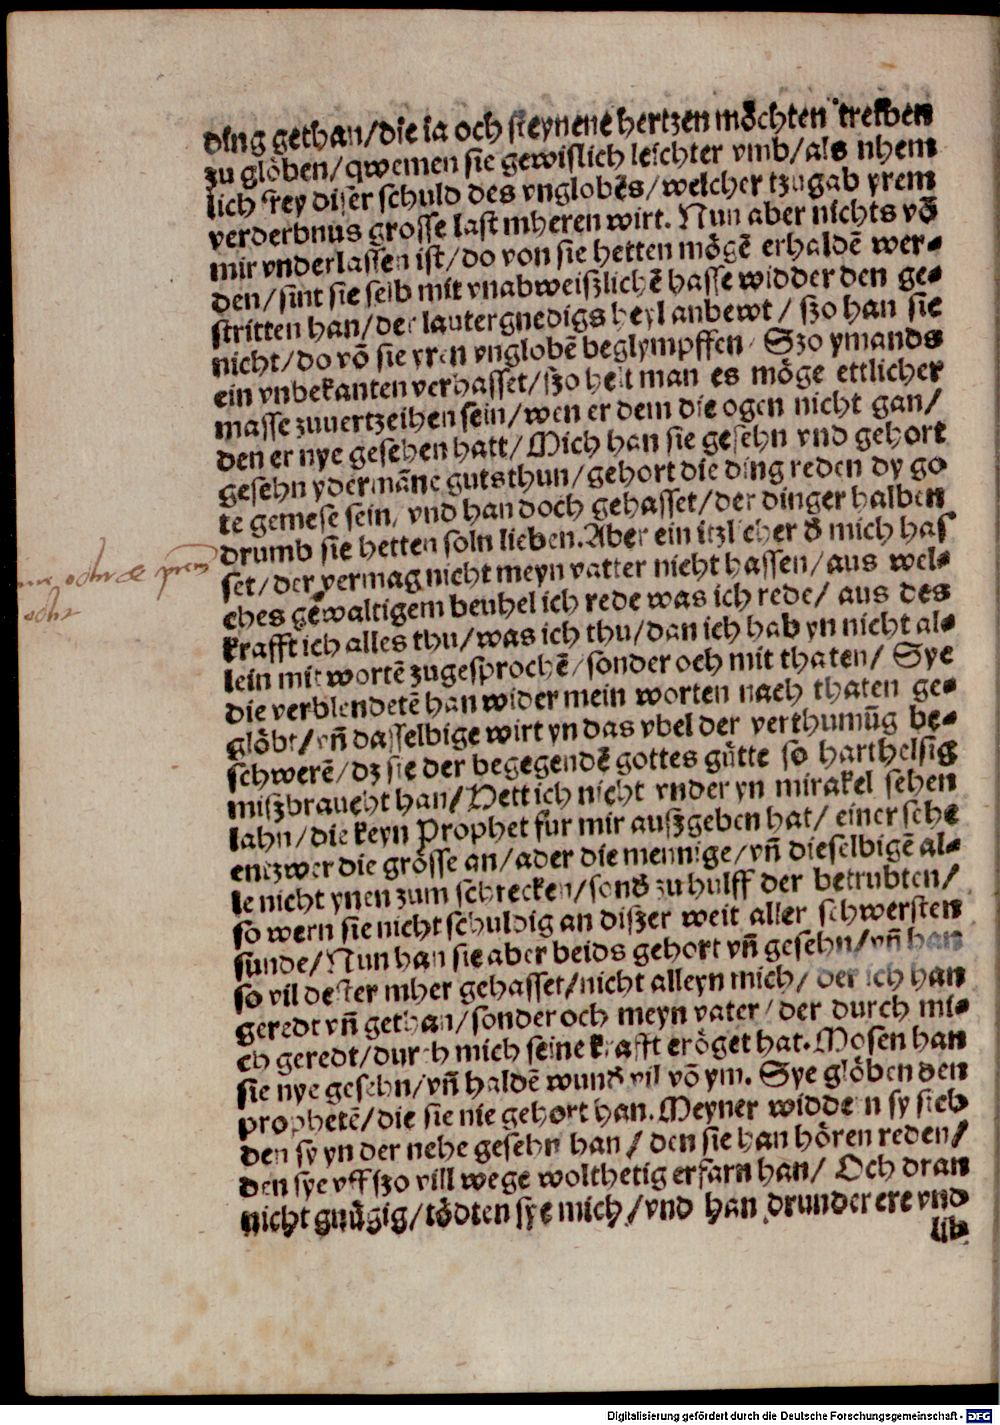 ding gethan/die ia och steynene hertzen möchten treiben
zu glöben/qwemen sie gewislich leichter vmb/als nhem
lich frey diser schuld des vnglobēs/welcher tzugab yrem
verderbnus grosse last mheren wirt. Nun aber nichts vō
mir vnderlassen ist/do von sie hetten mögē erhaldē wer-
den/sint sie selb mit vnabweißlichē hasse widder den ge-
stritten han/der lautergnedigs heyl anbewt/ szo han sie
nicht/do vō sie yren vnglobē beglympffen/ Szo ymands
ein vnbekanten verhasset/szo helt man es möge ettlicher
masse zuuertzeihen sein/wen er dem die ogen nicht gan/
den er nye gesehen hatt/Mich han sie gesehn vnd gehort
gesehn ydermāne guts thun/gehort die ding reden dy go
te gemese sein/ vnd han doch gehasset/der dinger halben
drumb sie hetten soln lieben. Aber ein itzlicher d̄ mich has
set/der vermag nicht meyn vatter nicht hassen/aus wel-
ches gewaltigem beuhel ich rede was ich rede/ aus des
krafft ich alles thu/was ich thu/dan ich hab yn nicht al-
lein mit wortē zugesprochē/sonder och mit thaten/ Sye
die verblendetē han wider mein worten nach thaten ge-
glöbt/vn̄ dasselbige wirt yn das vbel der verthumūg be-
schwerē/dz sie der begegendē gottes gütte so harthelsig
mißbraucht han/Hett ich nicht vnder yn mirakel sehen
lahn/die keyn Prophet fur mir außgeben hat/ einer sehe
entzwer die grösse an/ader die mennige/vn̄ dieselbigē al-
le nicht ynen zum schrecken/sond̄ zu hulff der betrubten/
so wern sie nicht schuldig an dißer weit aller schwersten
sunde/Nun han sie aber beids gehort vn̄ gesehn/vn̄ han
so vil dester mher gehasset/nicht alleyn mich/ der ich han
geredt vn̄ gethan/sonder och meyn vater/ der durch mi-
ch geredt/durch mich seine krafft eröget hat. Mosen han
sie nye gesehn/vn̄ haldē wund̄ vil vō ym. Sye glöben den
prophetē/die sie nie gehort han. Meyner widden sy sich
den sy yn der nehe gesehn han/ den sie han hören reden/
den sye vff szo vill wege wolthetig erfarn han/ Och dran
nicht gnügig/tödten sye mich/vnd han drunder ere vnd
lib